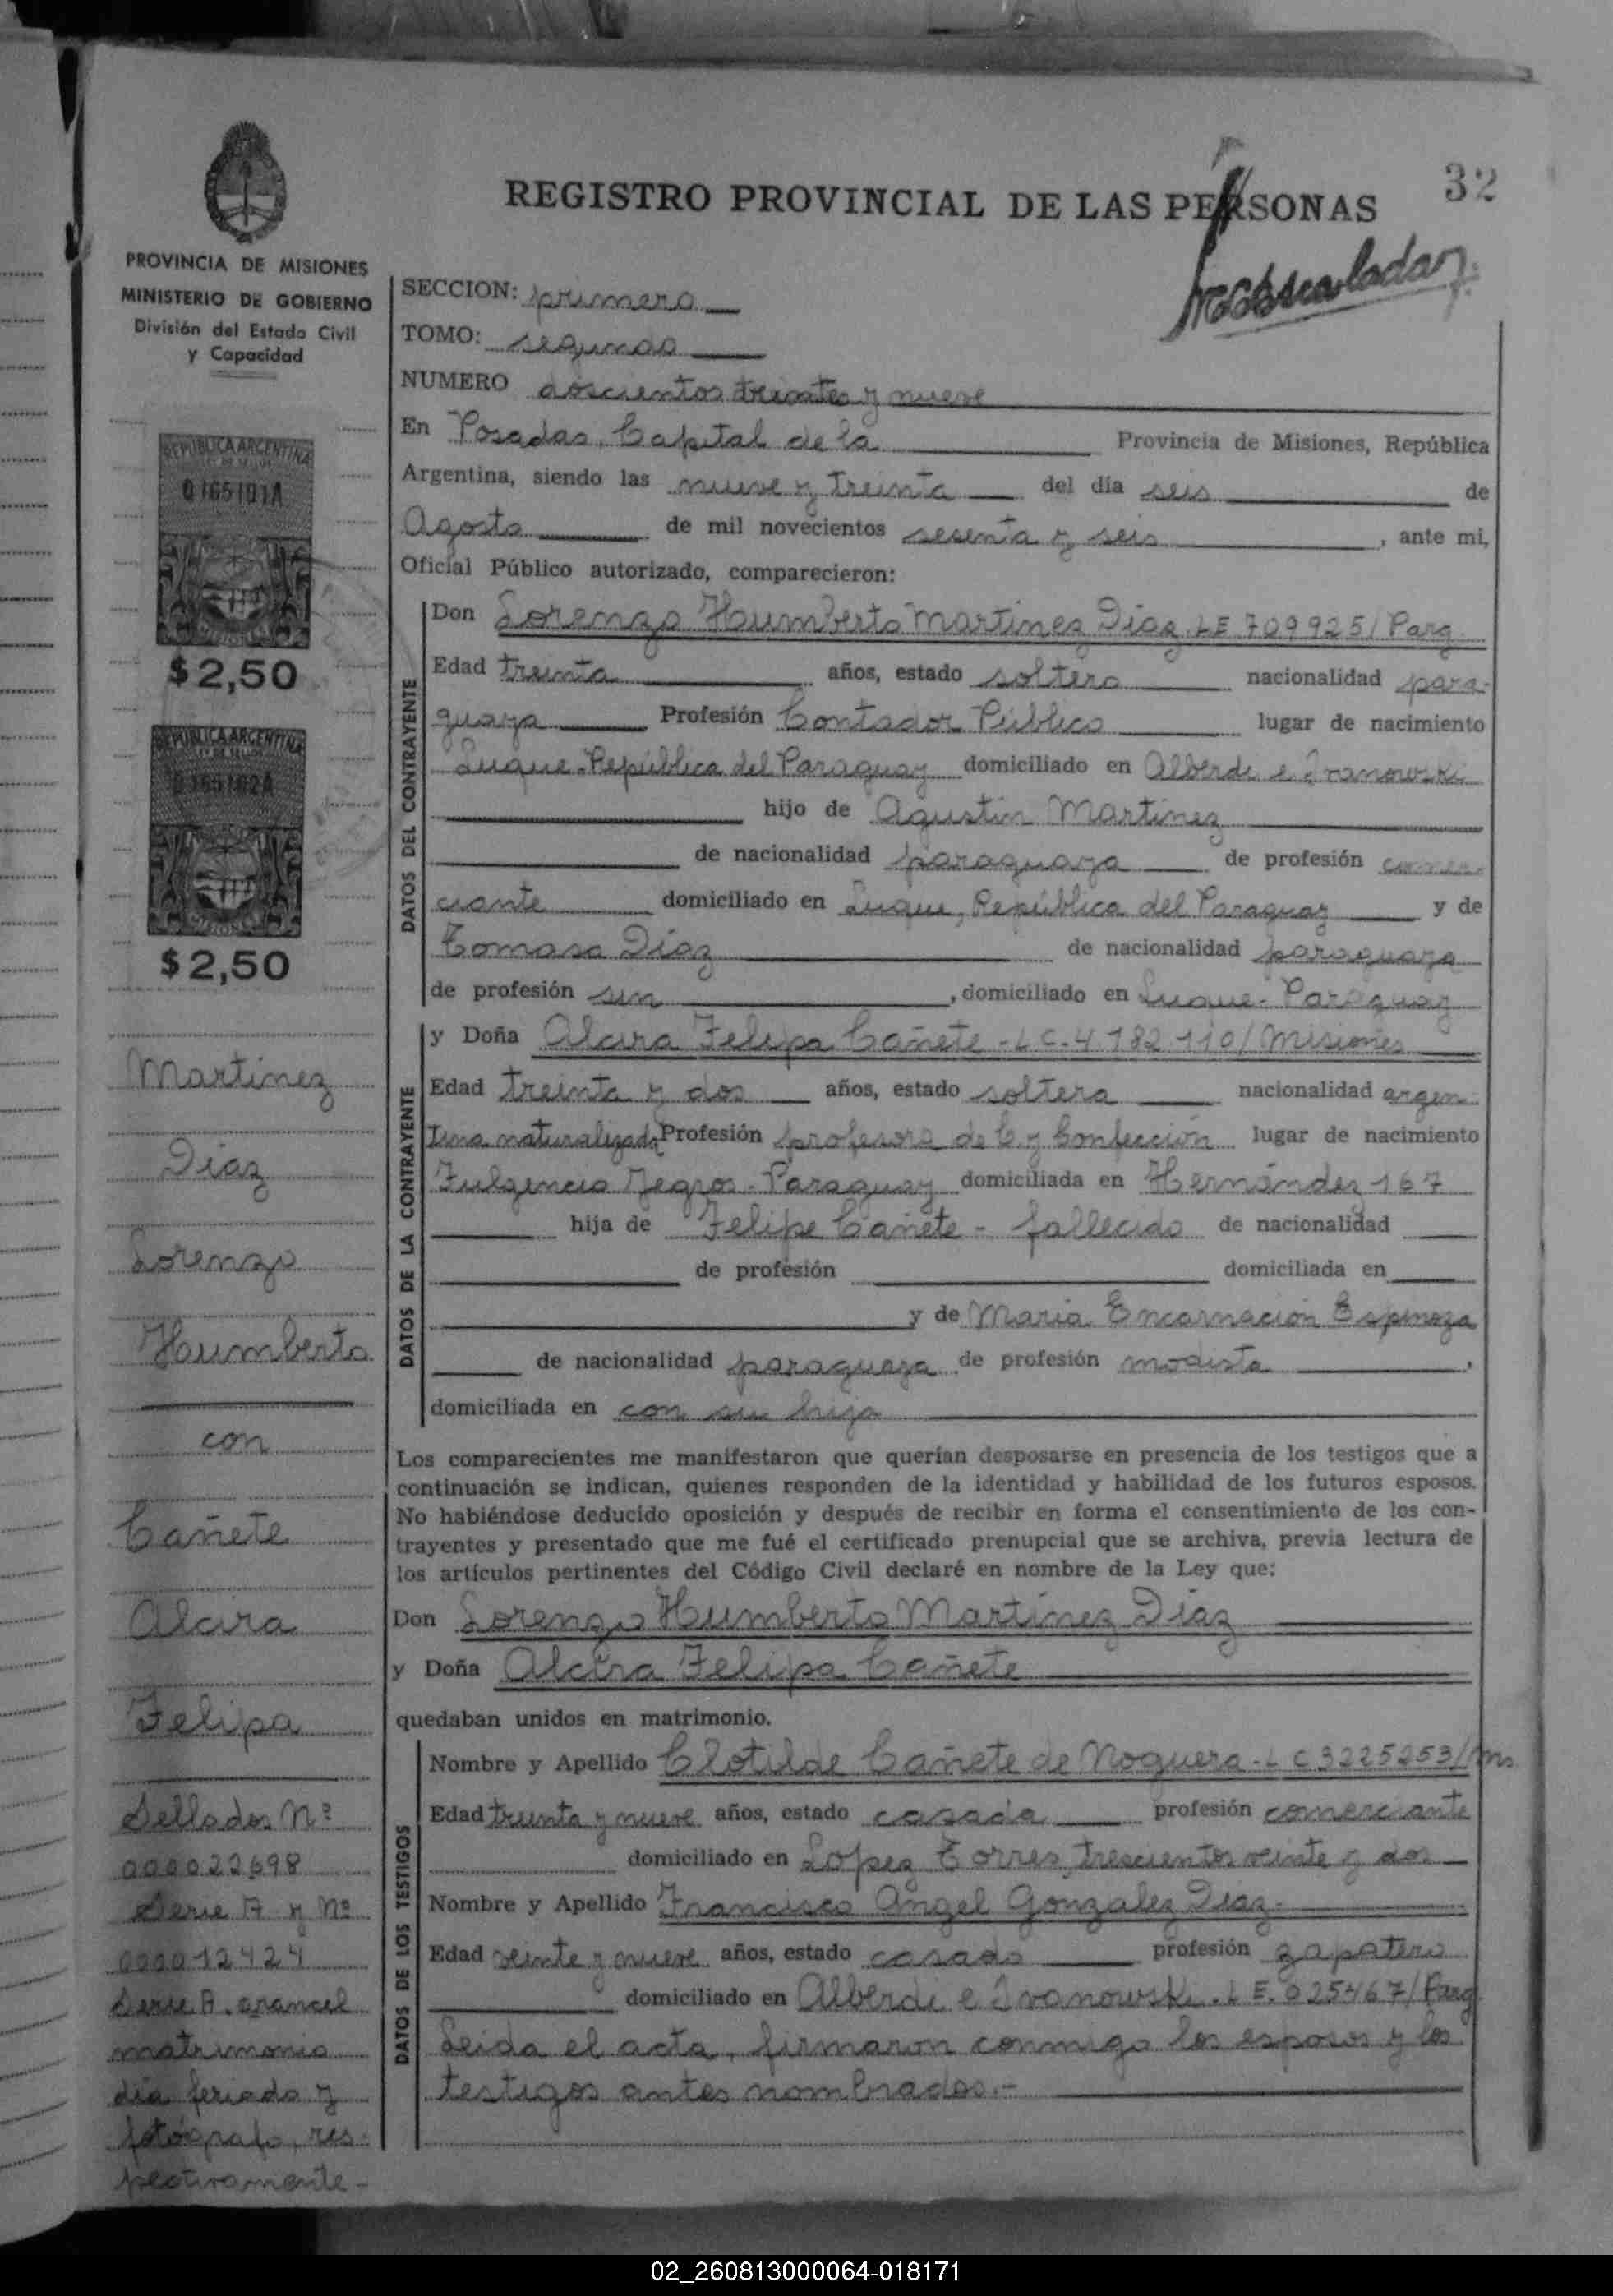 32
REGISTRO PROVINCIAL DE LAS PERSONAS
PROVINCIA DE MISIONES
MINISTERIO DE GOBIERNO
División del Estado Civil
y Capacidad
REPUBLICA ARGENTINA
LEY DE SELLOS
0165101A
MISIONES
$2,50
REPUBLICA ARGENTINA
LEY DE SELLOS
0165102A
MISIONES
$2,50
Martinez
Diaz
Lorenzo
Humberto
con
Cañete
Alcira
Felipa
Sellados Nº
000022698
Serie A y Nº
000012424
Serie A. arancel
matrimonio
dia feriado y
fotógrafo, res-
pectivamente -
SECCION: primera
TOMO: segundo
NUMERO doscientos treinta y nueve
En Posadas, Capital de la Provincia de Misiones, República
Argentina, siendo las nueve y treinta del día seis de
Agosto de mil novecientos sesenta y seis, ante mi,
Oficial Público autorizado, comparecieron:
DATOS DEL CONTRAYENTE
Don Lorenzo Humberto Martinez Diaz, LE 709925/Parg
Edad treinta años, estado soltero nacionalidad para-
guaya Profesión Contador Público lugar de nacimiento
Luque-República del Paraguay domiciliado en Alberdi e Ivanowski
hijo de Agustin Martinez
de nacionalidad paraguaya de profesión comer-
ciante domiciliado en Luque, República del Paraguay y de
Tomasa Diaz de nacionalidad paraguaya
de profesión sin, domiciliado en Luque- Paraguay
DATOS DE LA CONTRAYENTE
y Doña Alcira Felipa Cañete - L C.4.182.110/Misiones
Edad treinta y dos años, estado soltera nacionalidad argen-
tina naturalizada Profesión profesora de C. y Confección lugar de nacimiento
Fulgencio Yegros - Paraguay domiciliada en Hernández 167
hija de Felipe Cañete - fallecido de nacionalidad
de profesión domiciliada en
y de Maria Encarnación Espinoza
de nacionalidad paraguaya de profesión modista,
domiciliada en con su hija
Los comparecientes me manifestaron que querían desposarse en presencia de los testigos que a
continuación se indican, quienes responden de la identidad y habilidad de los futuros esposos.
No habiéndose deducido oposición y después de recibir en forma el consentimiento de los con-
trayentes y presentado que me fué el certificado prenupcial que se archiva, previa lectura de
los artículos pertinentes del Código Civil declaré en nombre de la Ley que:
Don Lorenzo Humberto Martinez Diaz
y Doña Alcira Felipa Cañete
quedaban unidos en matrimonio.
DATOS DE LOS TESTIGOS
Nombre y Apellido Clotilde Cañete de Noguera - L C 3225253/Ms.
Edad treinta y nueve años, estado casada profesión comerciante
domiciliado en Lopez Torres, trescientos veinte y dos
Nombre y Apellido Francisco Angel Gonzalez Diaz.
Edad veinte y nueve años, estado casado profesión zapatero
domiciliado en Alberdi e Ivanowski. L E. 025467/Parg
Leida el acta, firmaron conmigo los esposos y los
testigos antes nombrados.-
02_260813000064-018171